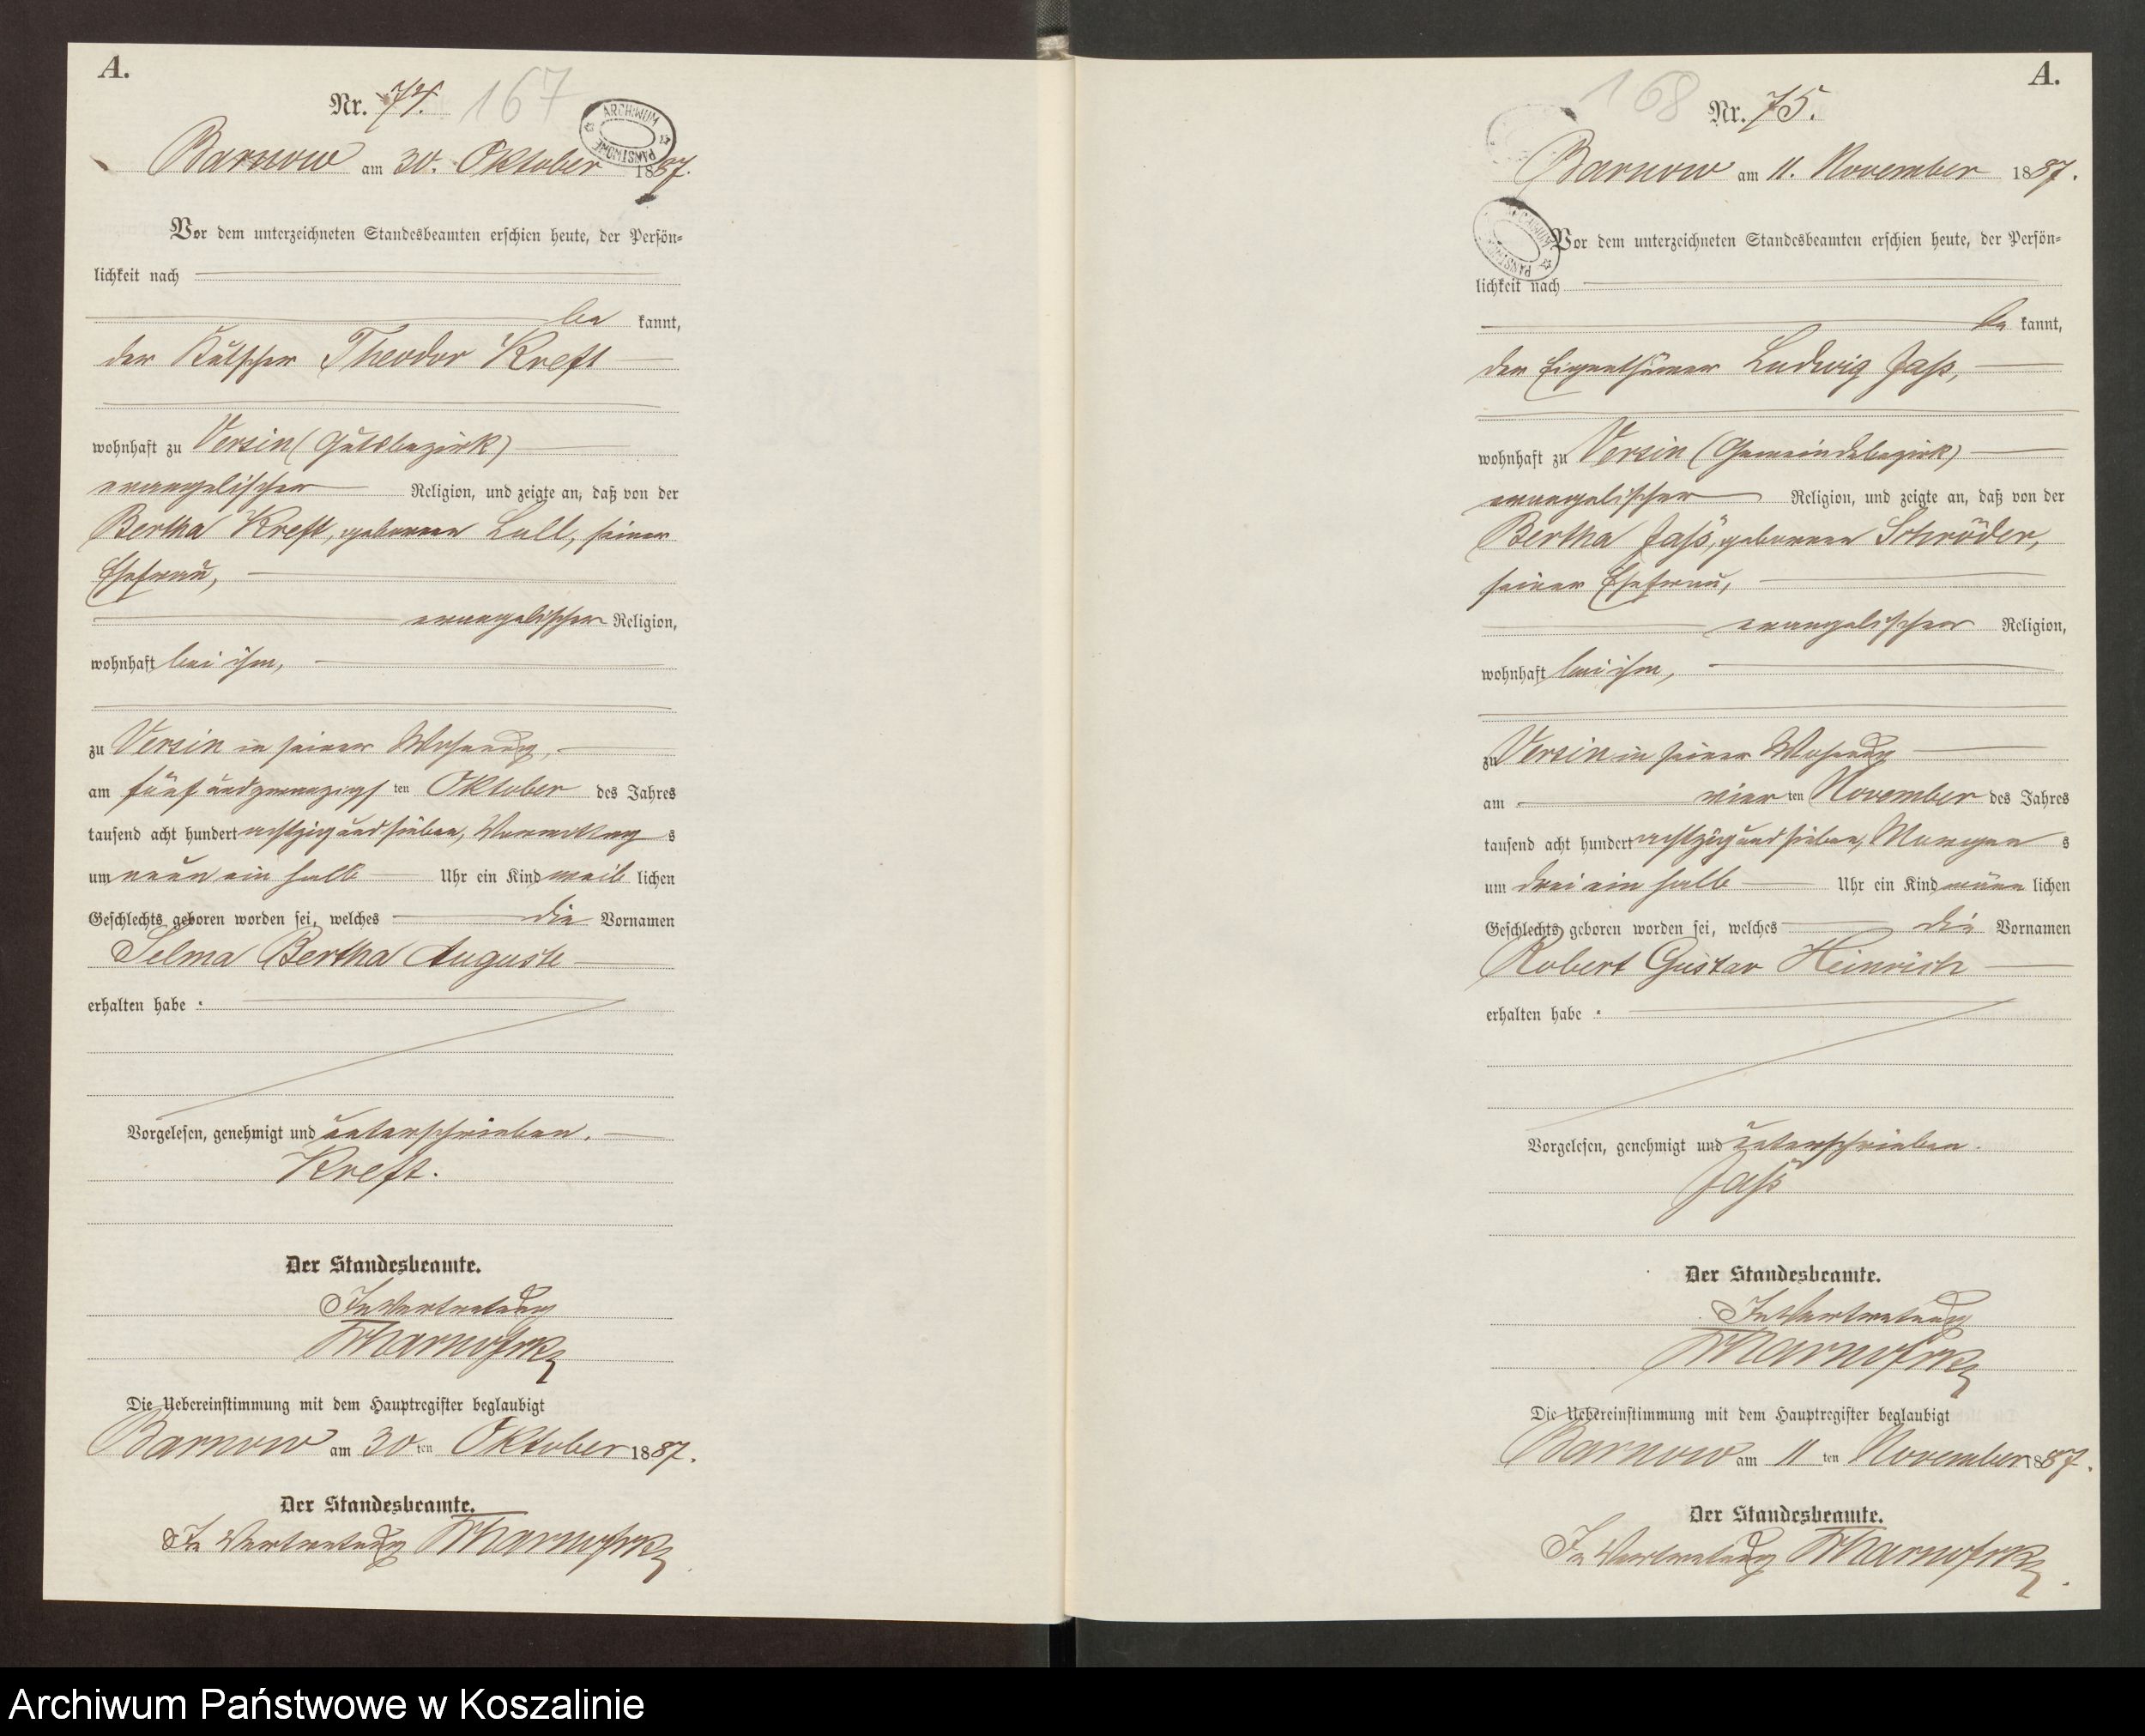 A.
Nr. 74. 167
ARCHIWUM PAŃSTWOWE
Barnow am 30. Oktober 1887.
Vor dem unterzeichneten Standesbeamten erschien heute, der Persön=
lichkeit nach
be kannt,
der Kutscher Theodor Kreft
wohnhaft zu Versin (Gutsbezirk)
evangelischer Religion, und zeigte an, daß von der
Bertha Kreft, geborenen Lall, seiner
Ehefrau,
evangelischer Religion,
wohnhaft bei ihm,
zu Versin in seiner Wohnung,
am fünf und zwanzigs ten Oktober des Jahres
tausend acht hundert achtzig und sieben, Vormittag s
um neun ein halb Uhr ein Kind weib lichen
Geschlechts geboren worden sei, welches die Vornamen
Selma Bertha Auguste
erhalten habe .
Vorgelesen, genehmigt und unterschrieben.
Kreft.
Der Standesbeamte.
In Vertretung
Die Uebereinstimmung mit dem Hauptregister beglaubigt
Barnow am 30 ten Oktober 1887.
Der Standesbeamte.
In Vertretung
A.
168 Nr. 75.
Barnow am 11. November 1887.
ARCHIWUM PAŃSTWOWE
Vor dem unterzeichneten Standesbeamten erschien heute, der Persön=
lichkeit nach
be kannt,
der Eigenthümer Ludwig Jaß,
wohnhaft zu Versin (Gemeindebezirk)
evangelischer Religion, und zeigte an, daß von der
Bertha Jaß, geborenen Schröder,
seiner Ehefrau,
evangelischer Religion,
wohnhaft bei ihm,
zu Versin in seiner Wohnung
am vier ten November des Jahres
tausend acht hundert achtzig und sieben, Morgen s
um drei ein halb Uhr ein Kind männ lichen
Geschlechts geboren worden sei, welches die Vornamen
Robert Gustav Heinrich
erhalten habe .
Vorgelesen, genehmigt und unterschrieben.
Jaß
Der Standesbeamte.
In Vertretung
Die Uebereinstimmung mit dem Hauptregister beglaubigt
Barnow am 11 ten November 1887.
Der Standesbeamte.
In Vertretung
Archiwum Państwowe w Koszalinie